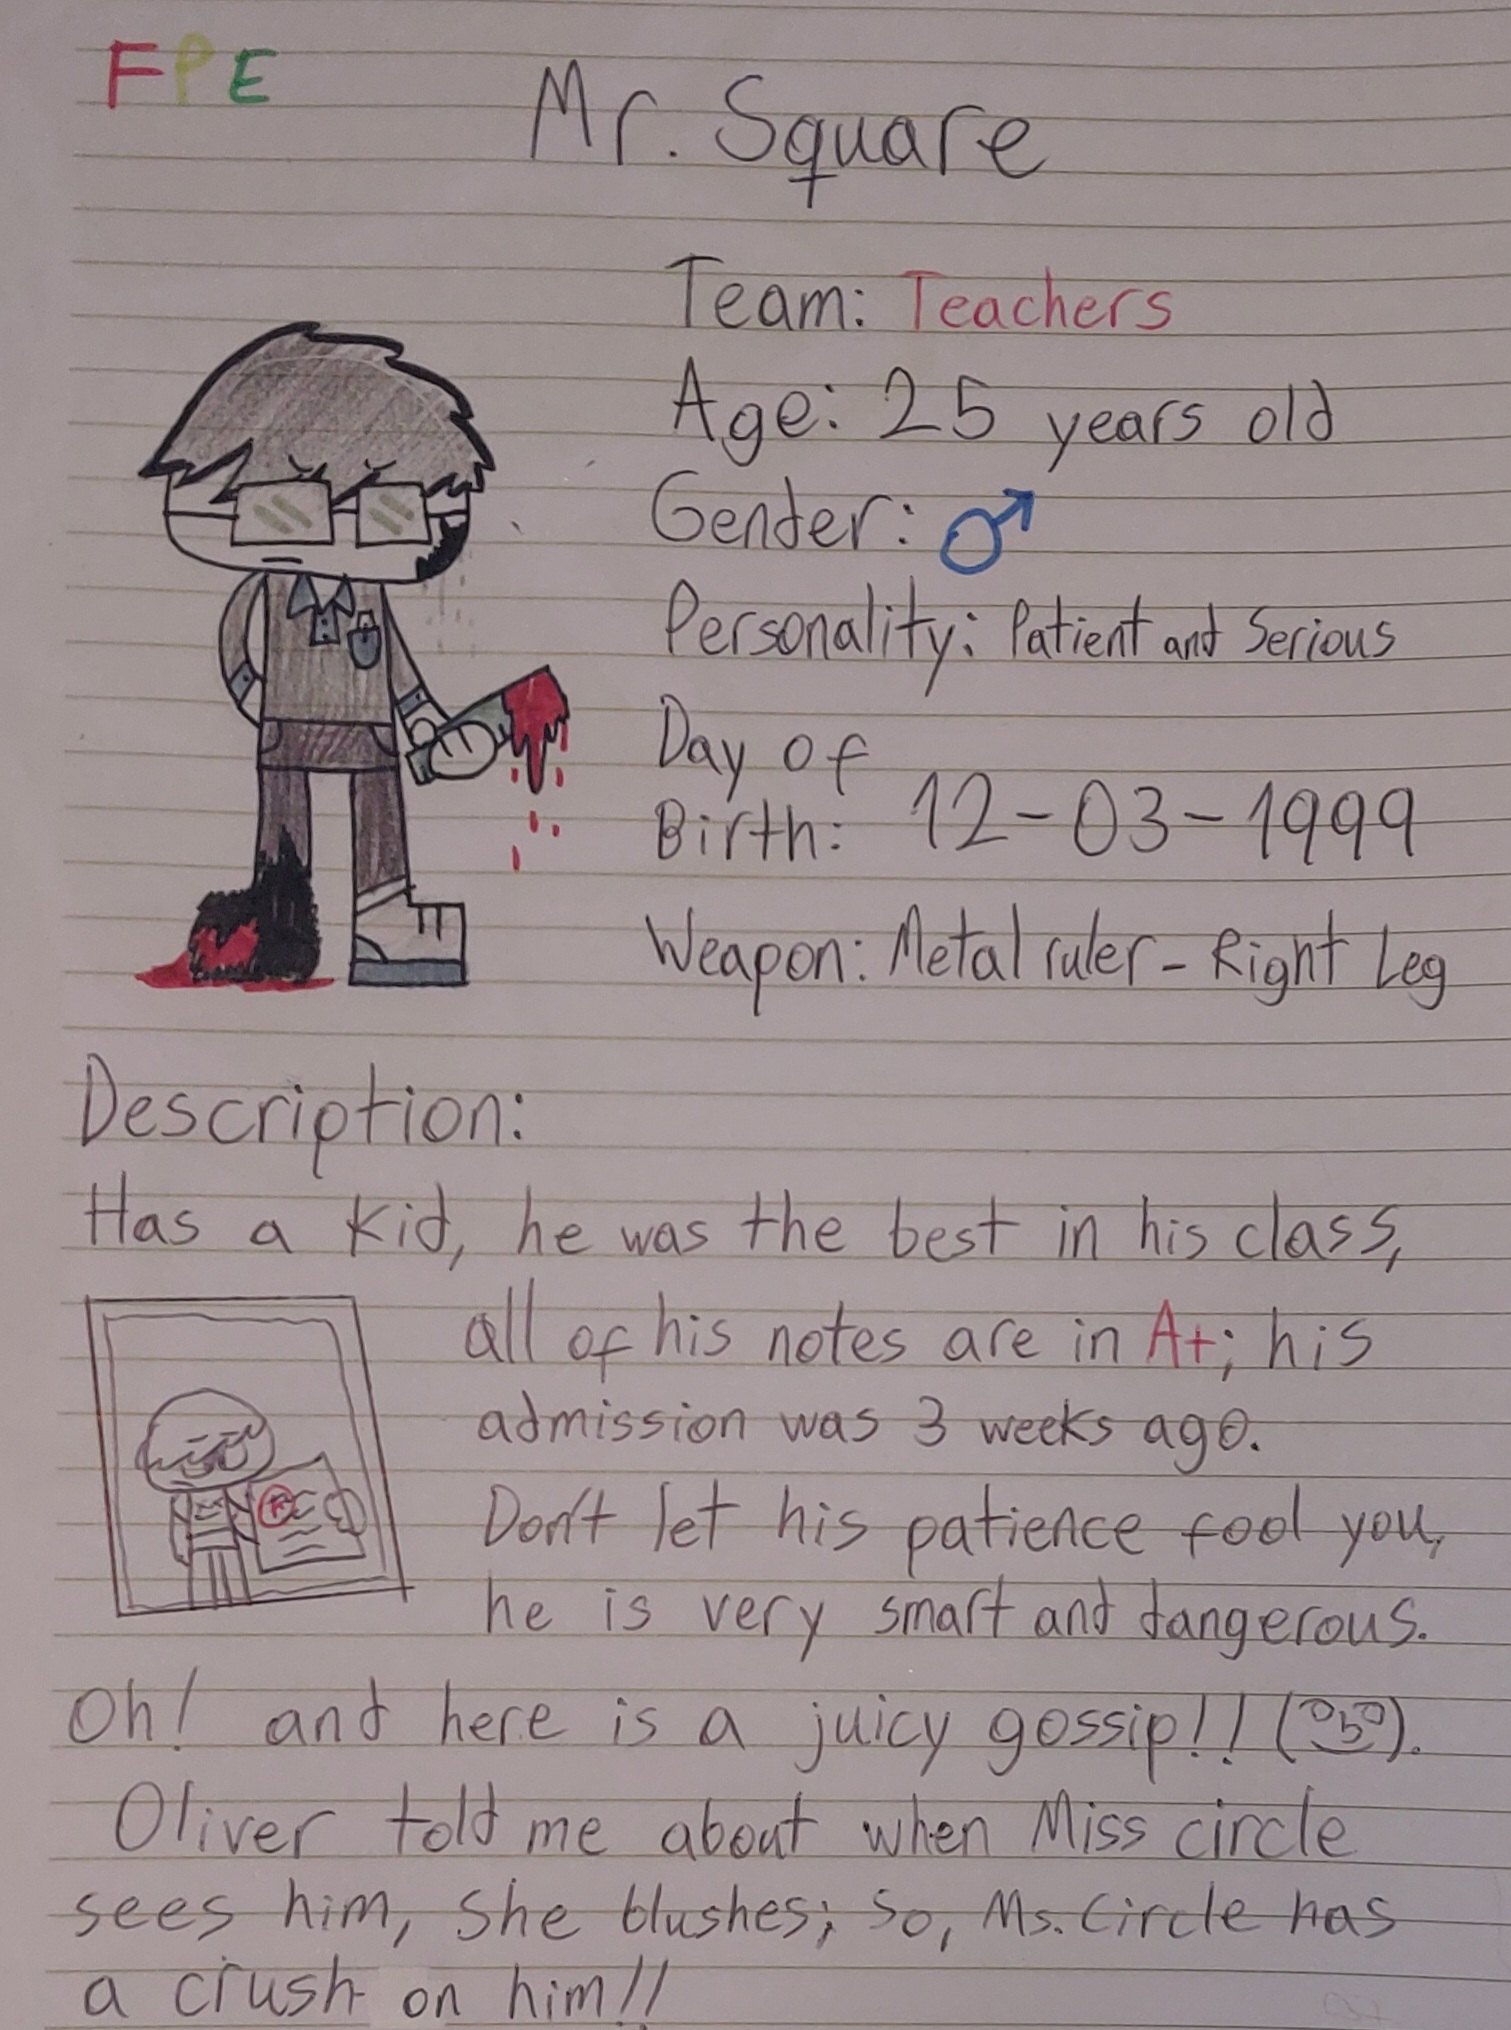 FPE
Mr. Square
Team: Teachers
Age: 25 years old
Gender: ♂
Personality: Patient and Serious
Day of
Birth: 12-03-1999
Weapon: Metal ruler - Right Leg
Description:
Has a kid, he was the best in his class,
all of his notes are in A+; his
admission was 3 weeks ago.
Don't let his patience fool you,
he is very smart and dangerous.
Oh! and here is a juicy gossip!!
Oliver told me about when Miss circle
sees him, she blushes; so, Ms. Circle has
a crush on him!!